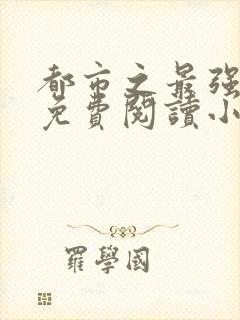 都市之最强
免費閱讀小
羅學國